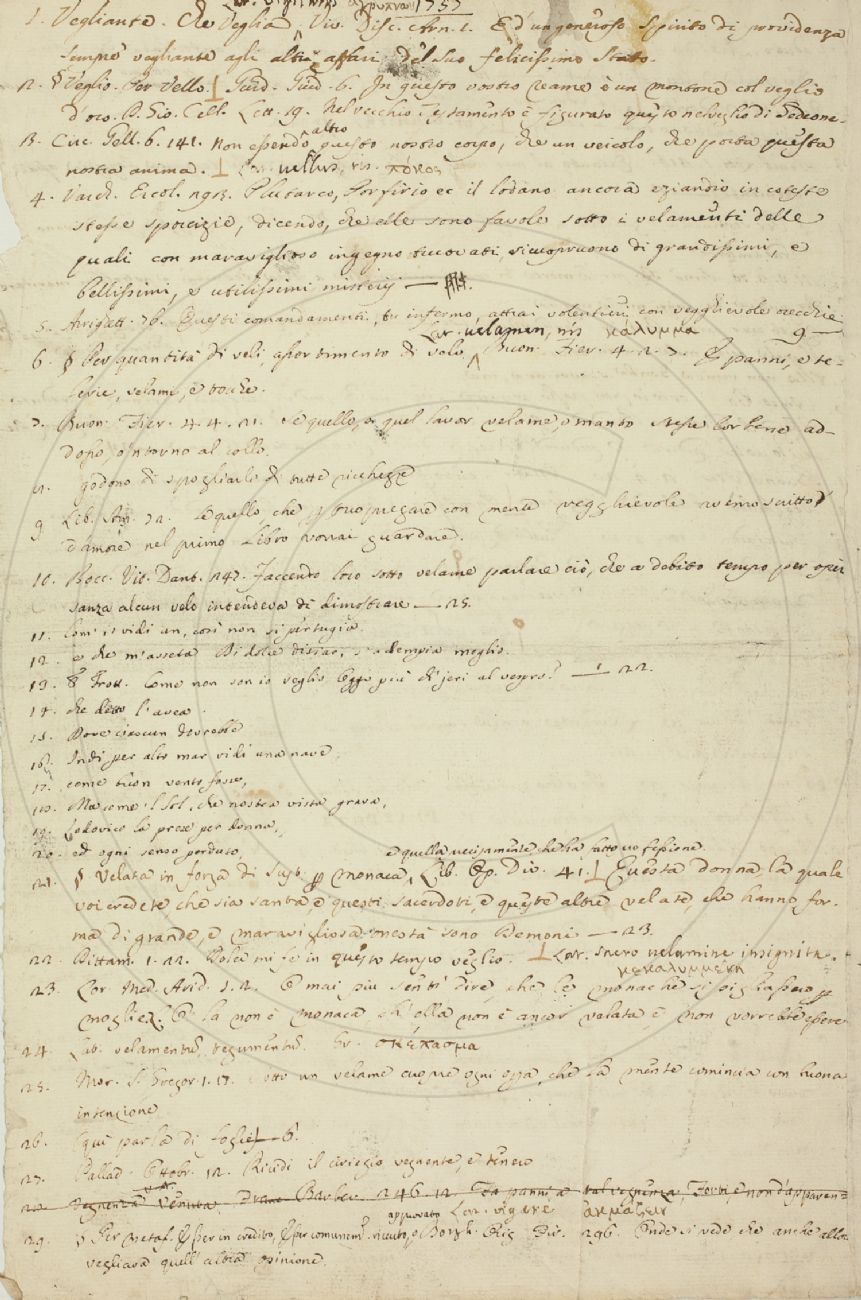 Lat. vigilans ἄγρυπνος 1757
1. Vegliante. Che veglia, Viv. Disc. Arn. 1. E d'un generoso spirito di providenza
sempre vegliante agli altri affari del suo felicissimo stato.
2. § Veglio. Per Vello. Guid. Giud. 6. In questo vostro reame è un montone col veglio
d'oro. D. Gio. Cell. Lett. 19. Nel vecchio Testamento è figurato questo nel veglio di Gedeone
3. Circ. Gell. 6. 141. Non essendo altro questo nostro corpo, che un veicolo, che porta questa
nostra anima. Lat. vellus, πόκος
4. Varch. Ercol. 293. Plutarco, Porfirio ec il lodano ancora eziandio in coteste
stesse sporcizie, dicendo, che elle sono favole sotto i velamenti delle
quali con maraviglioso ingegno trovati, ricuopruono di grandissimi, e
bellissimi, e utilissimi misterij —
5. Arrighett. 76. Questi comandamenti, tu infermo, attrai volentieri con vegghievole orecchie.
Lat. velamen, καλυμμα 9 —
6. § Per quantità di veli, assortimento di velo, Buon. Fier. 4. 2. 7. E panni, e te-
lerie, velami, e
7. Buon. Fier. 4. 4. 21. Se quello, o quel lavor velame, o manto stesse lor bene ad-
dosso, o intorno al collo.
8. godono di spogliarlo di tutte ricchezze
9. Lib. Am. 72. E quello, che tuo pregare con mente vegghievole avemo scritto
d'amore nel primo Libro vorrai guardare.
10. Bocc. Vit. Dant. 247. Faccendo loro sotto velame parlare ciò, che a debito tempo per
sanza alcun velo intendeva di dimostrare — 25.
11. Com' i' vidi un, così non si pertugia
12. e che m'asseta Di dolce disiar, s'adempia meglio.
13. § Frott. Come non son io veglio oggi più di jeri al vespro? — 22.
14. che detto l'avea.
15. Dove ciascun dovrebbe
16. Indi per alto mar vidi una nave
17. come buon vento fosse,
18. Ma come 'l Sol, che nostra vista grava,
19. Lodovico la prese per donna,
20. ed ogni senso perduto,
e quella veci
21. § Velata in forza di Sust. monaca, Lib. Op. Div. 41. Questa donna, la quale
voi credete che sia santa, e questi sacerdoti, e queste altre velate, che hanno for-
ma di grande, e maravigliosa onestà sono Demoni — 23.
22. Dittam. 1. 22. Poscia mi fe in questo tempo veglio. Lat. sacro velamine insignita.
κεκαλυμμένη
23. Lor. Med. Arid. 1. 2. O mai più sentì dire, che le monache si pigliassero
moglie? E la non è monaca ch' ella non è ancor velata e non vorrebbe essere
24. Lat. velamentum, tegumentum. Gr. σκέπασμα
25. Mor. S. Gregor. 1. 17. Sotto un velame cuopre ogni cosa, che la mente comincia con buona
intenzione
26. Qui parla di foglie — 6.
27. Pallad. Ottobr. 12. Ricidi il ciriegio vegnente, e tenero
28. Vegnenza Venuta, Franc. Barber. 246. 12. Tra panni a tal vegnenza, Forti, e non d'apparen=
approvato Lat. vigere ἀκμάζειν
29. § Per metaf. Esser in credito, Esser comunem. ricevuto, Borgh. Rip. Div. 296. Onde si vede che anche allor
vegliava quell' altra opinione